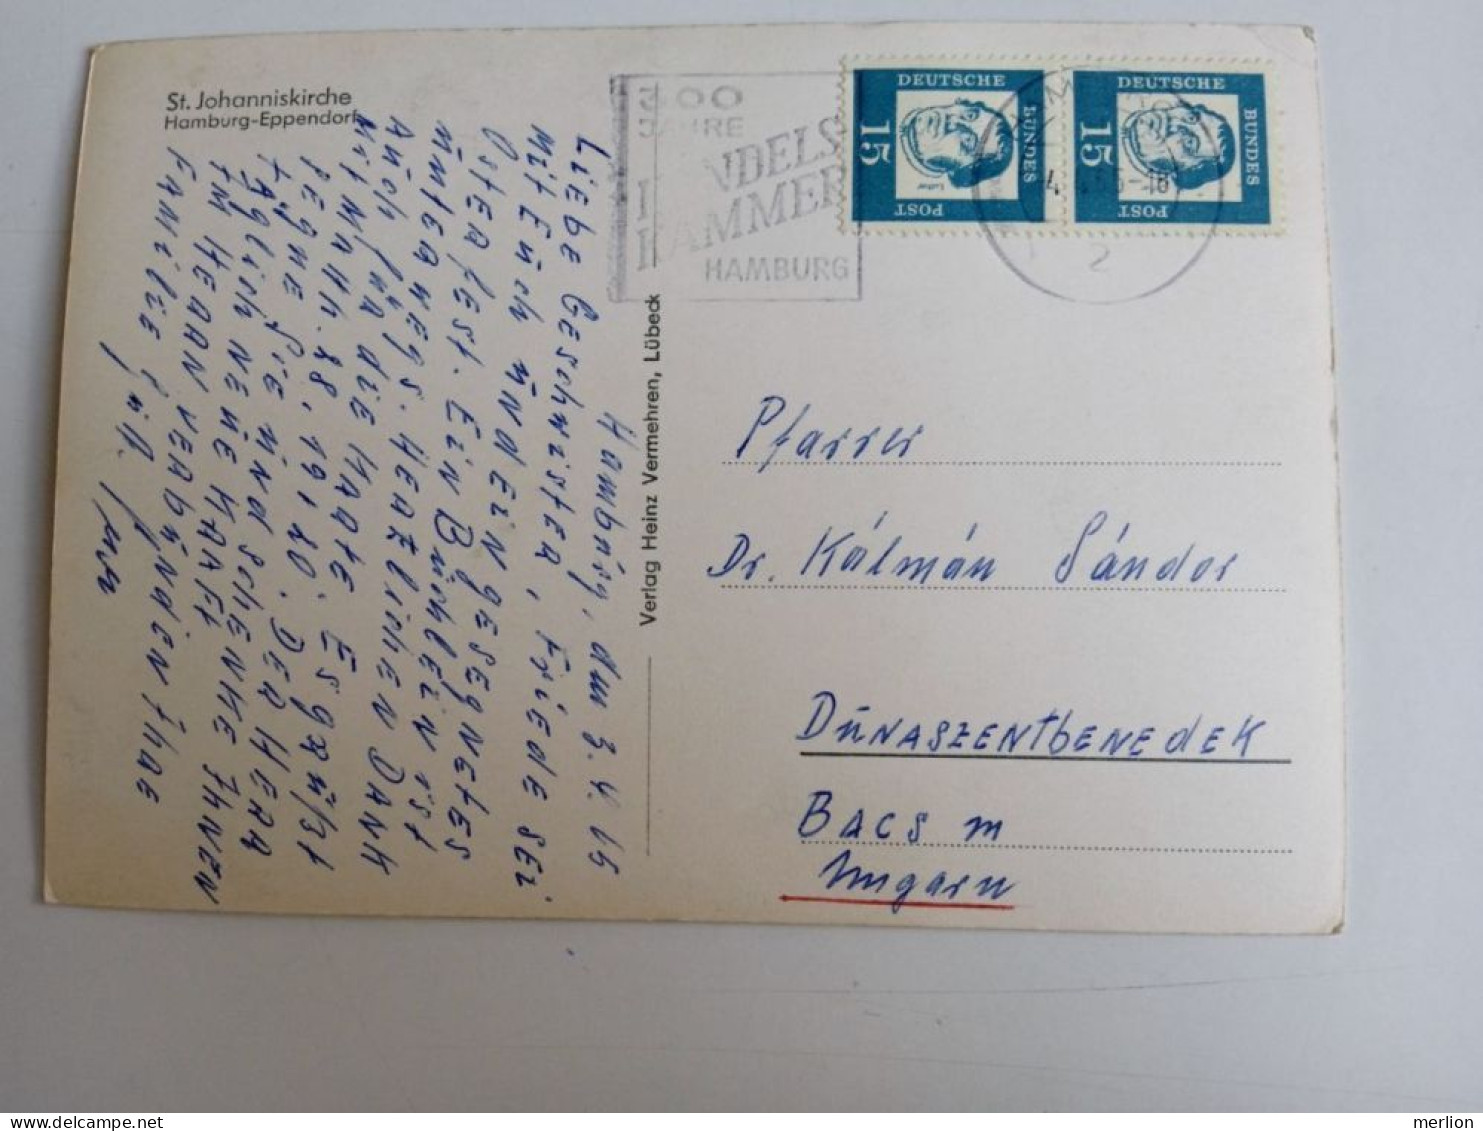 St. Johanniskirche
Hamburg-Eppendorf
300
JAHRE
HANDELS
KAMMER
HAMBURG
DEUTSCHE
BUNDES
POST
15
Luther
DEUTSCHE
BUNDES
POST
15
2
Verlag Heinz Vermehren, Lübeck
Hamburg, den 3.4.65
Liebe Geschwister, Friede sei
mit Euch und ein gesegnetes
Osterfest. Ein Büchlein ist
unterwegs. Herzlichen Dank
auch für die Karte. Es grüßt
mit Math. 28, 19.20. Der Herr
segne Sie und schenke Ihnen
täglich neue Kraft
Im Herrn verbunden Ihre
Familie
Pfarrer
Dr. Kálmán Sándor
DUNASZENTBENEDEK
BACS m
Ungarn